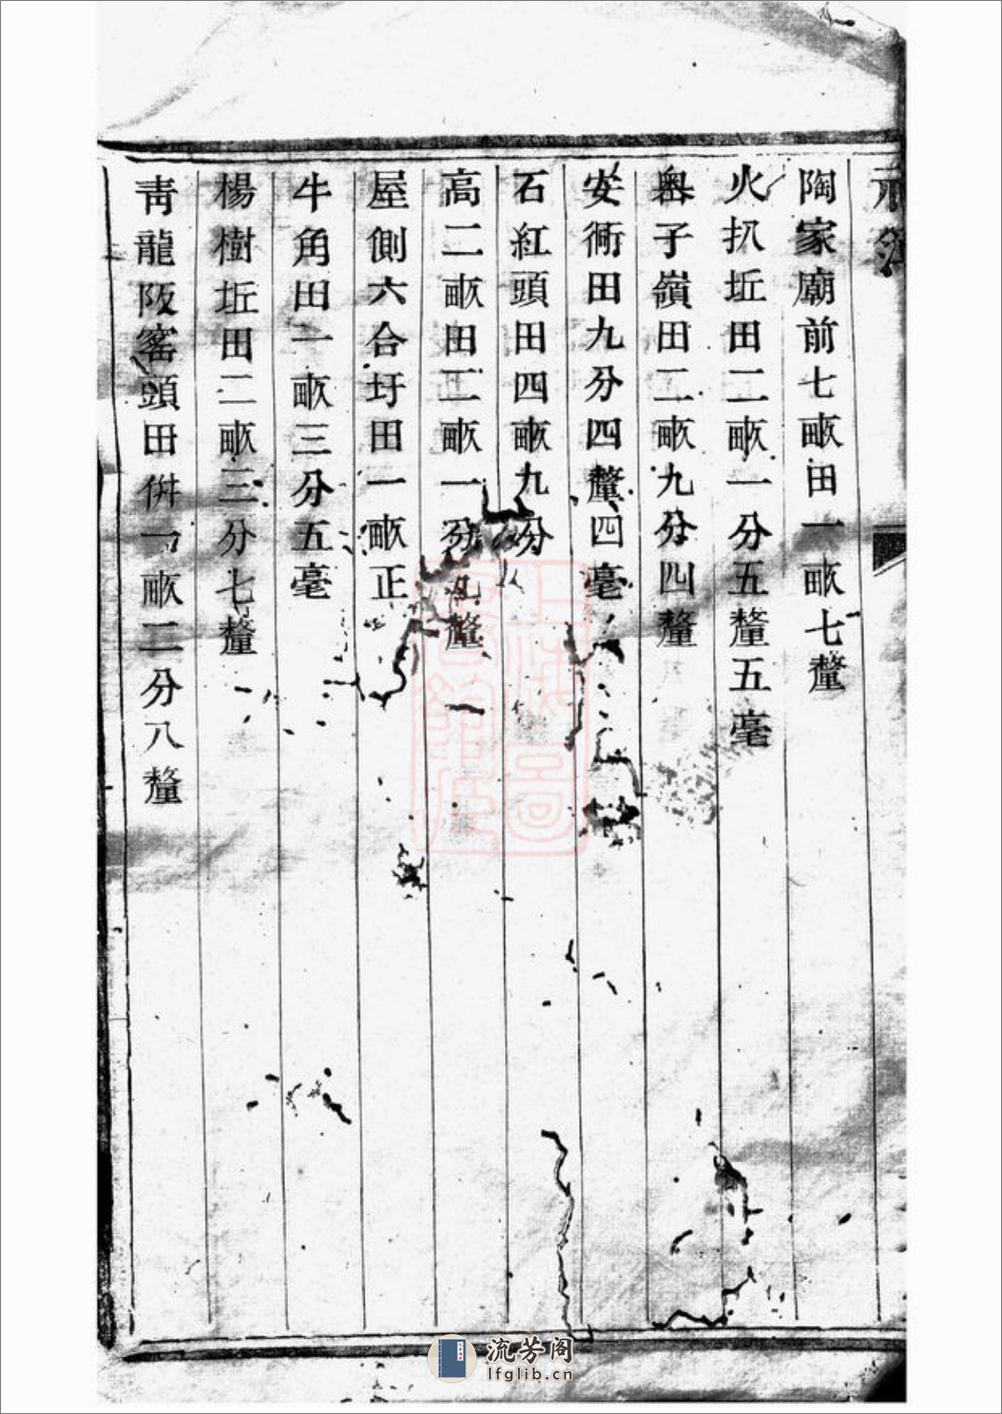 陶家廟前七畝田一畝七釐
火扒坵田二畝一分五釐五毫
奥子嶺田二畝九分四釐
安衕田九分四釐四毫
石紅頭田四畝九分
高二畝田二畝一分九釐
屋側六合圩田一畝正
牛角田一畝三分五毫
楊樹坵田二畝三分七釐
青龍阪窰頭田併一畝二分八釐
流芳阁
lfglib.cn